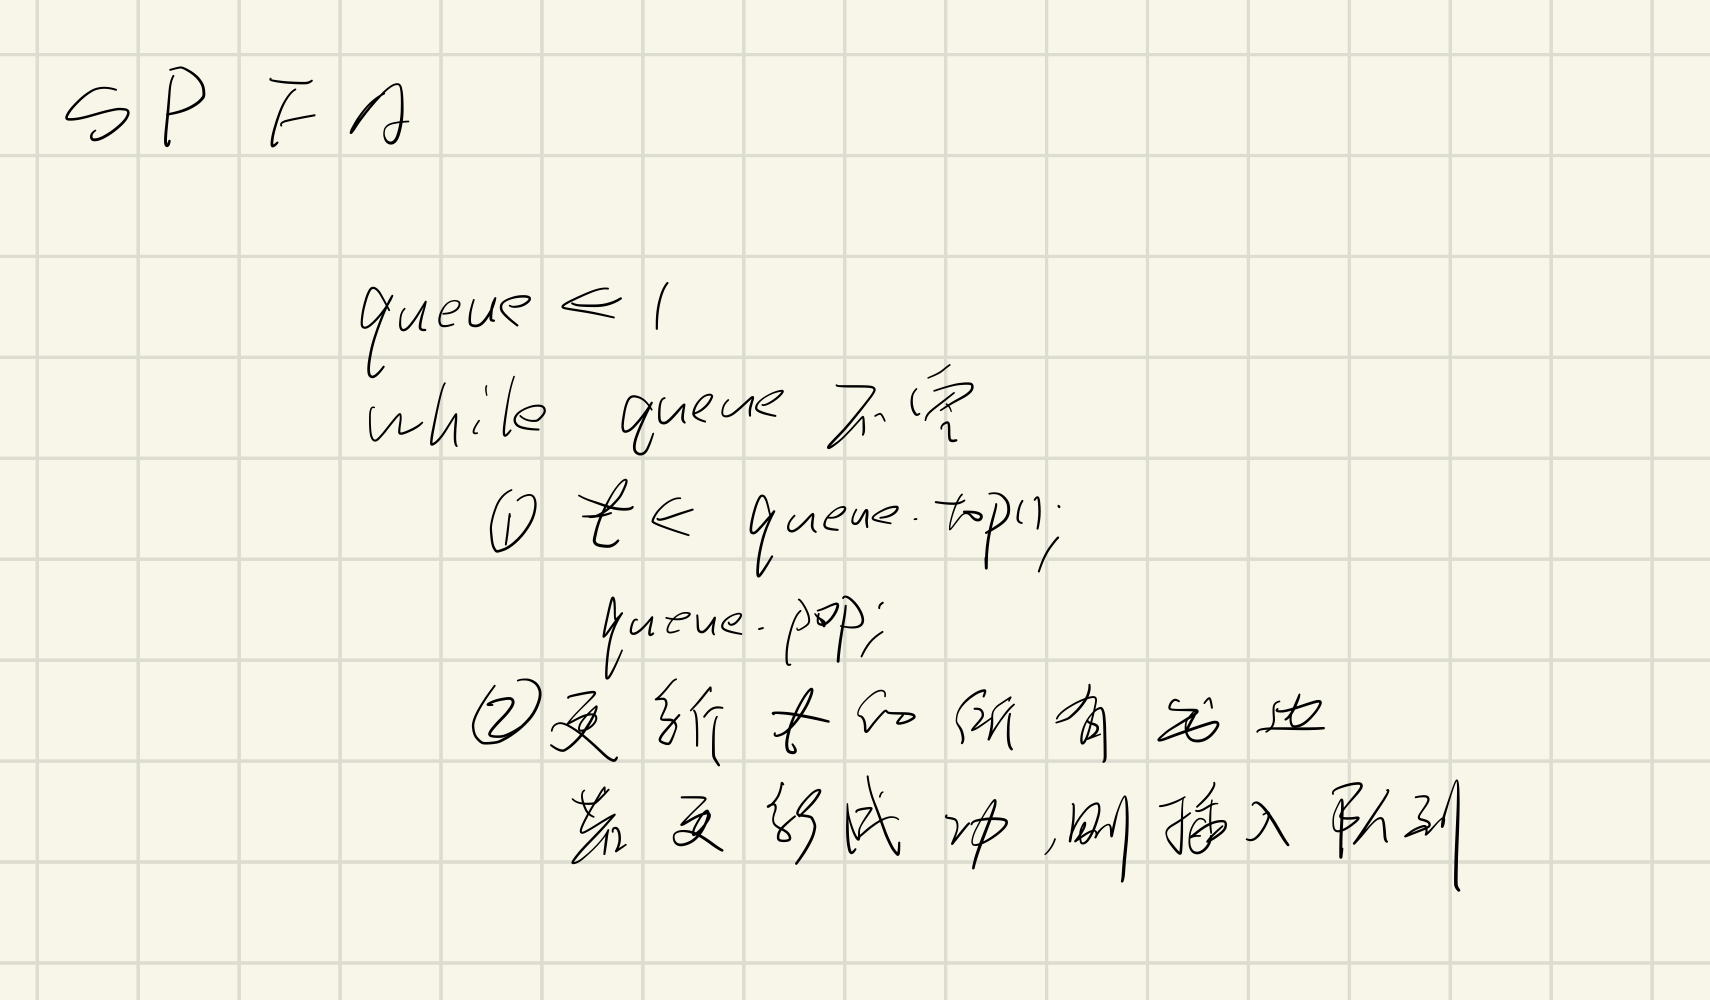 SPFA
queue ← 1
while queue 不空
① t ← queue.top();
queue.pop;
② 更新 t 的所有出边
若更新成功,则插入队列